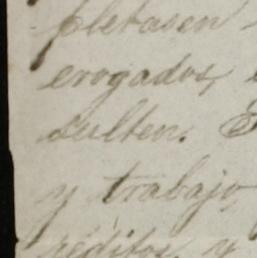 pletasen
erogados,
sulten.
y trabajo,
réditos y